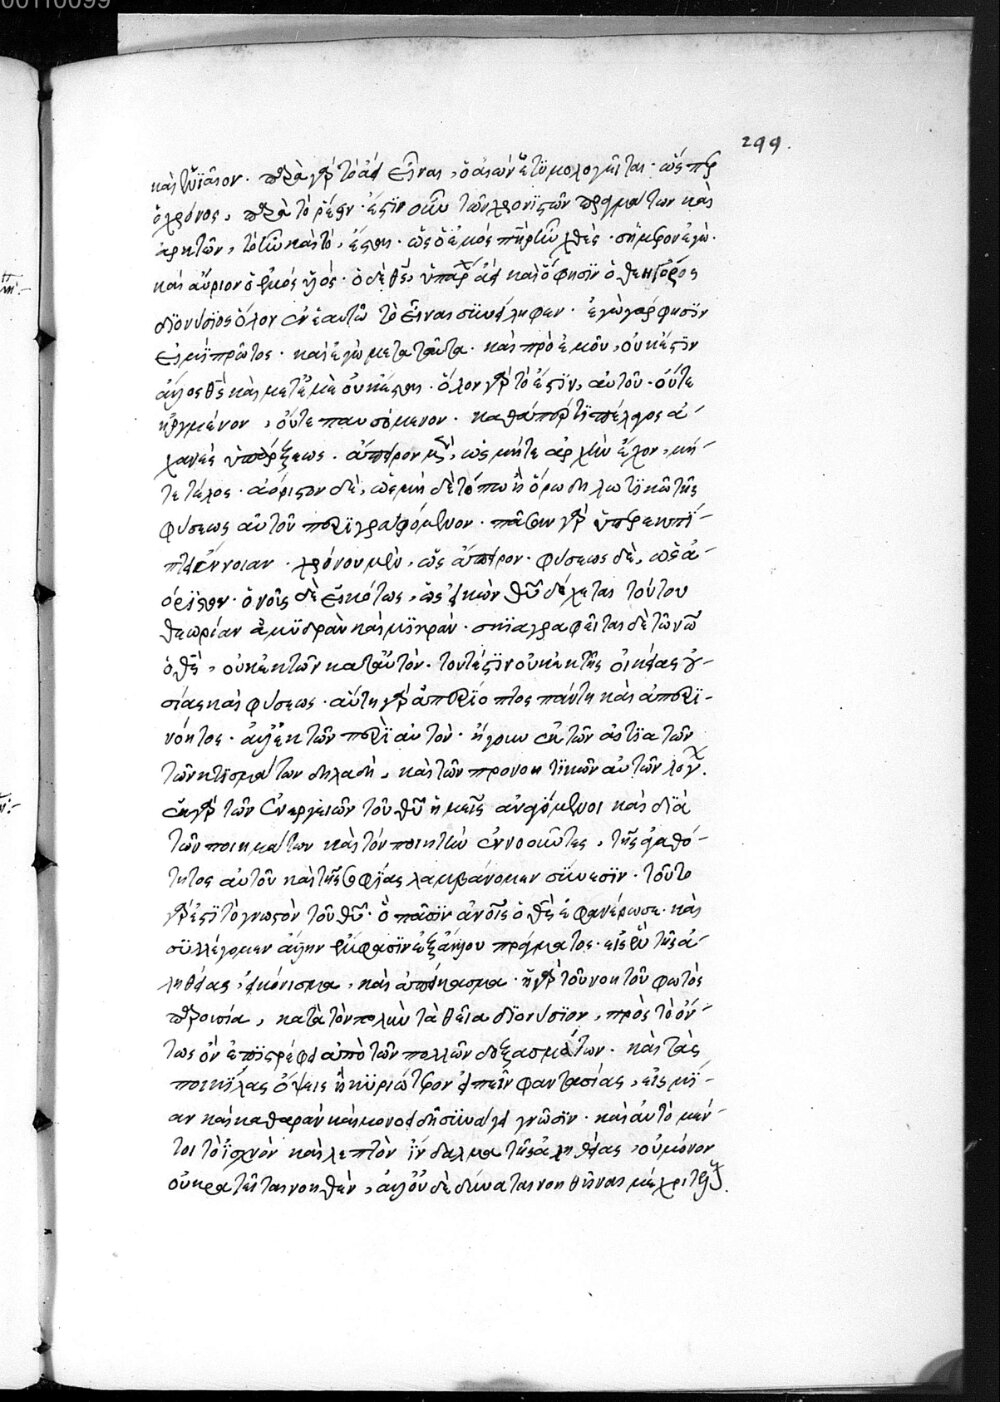 299.
καὶ τὸ ἴδιον. παρὰ γὰρ τὸ ἀεὶ εἶναι, ὁ αἰὼν ἐτυμολογεῖται. ὥσπερ
ὁ χρόνος, παρὰ τὸ ῥέειν. ἐστὶν οὖν τῶν χρονικῶν πραγμάτων καὶ
ἀρκτῶν, τὸ ἦν καὶ τὸ, ἔσται. ὡς ὁ ἐμὸς πατὴρ ἦν χθὲς. σήμερον ἐγὼ.
καὶ αὔριον ὁ ἐμὸς υἱός. ὁ δὲ θεὸς, ὑπάρχει ἀεὶ καὶ ὥς φησιν ὁ θεηγόρος
διονύσιος ὅλον ἐν ἑαυτῷ τὸ εἶναι συνείληφεν. ἐγὼ γάρ φησιν
εἰμὶ πρῶτος. καὶ ἐγὼ μετὰ ταῦτα. καὶ πρὸ ἐμοῦ, οὐκ ἔστιν
ἄλλος θεὸς καὶ μετ' ἐμὲ οὐκ ἔσται. ὅλον γὰρ τὸ ἔστιν, αὐτοῦ. οὔτε
ἠργμένον, οὔτε παυσόμενον. καθάπερ τι πέλαγος ἀ-
χανὲς ὑπάρξεως. ἄπειρον μὲν, ὡς μήτε ἀρχὴν ἔχον, μή-
τε τέλος. ἀόριστον δὲ, ὡς μηδὲ τόπω ἢ ὅρω δηλωτικῶ τῆς
φύσεως αὐτοῦ περιγραφόμενον. πᾶσαν γὰρ ὑπερεκπί-
πτει ἔννοιαν. χρόνου μὲν, ὡς ἄπειρον. φύσεως δὲ, ὡς ἀ-
όριστον. ὁ νοῦς δὲ εἰκότως, ὡς εἰκὼν θεοῦ δέχεται τούτου
θεωρίαν ἀμυδρὰν καὶ μικράν. σκιαγραφεῖται δὲ τῷ νῷ
ὁ θεὸς, οὐκ ἐκ τῶν κατ' αὐτόν. τουτέστιν οὐκ ἐκ τῆς οἰκείας οὐ-
σίας καὶ φύσεως. αὕτη γὰρ ἀπερίοπτος πάντη καὶ ἀπερι-
νόητος. ἀλλ' ἐκ τῶν περὶ αὐτόν. ἤγουν ἐκ τῶν αἰτιατῶν
τῶν κτισμάτων δηλαδή, καὶ τῶν προνοητικῶν αὐτῶν λόγων.
ἐκ γὰρ τῶν ἐνεργειῶν τοῦ θεοῦ ἡμεῖς ἀναγόμενοι καὶ διὰ
τῶν ποιημάτων καὶ τὸν ποιητὴν ἐννοοῦντες, τῆς ἀγαθό-
τητος αὐτοῦ καὶ τῆς σοφίας λαμβάνομεν σύνεσιν. τοῦτο
γάρ ἐστι τὸ γνωστὸν τοῦ θεοῦ. ὃ πᾶσιν ἀνθρώποις ὁ θεὸς ἐφανέρωσε. καὶ
συλλέγομεν ἄλλην ἔμφασιν ἐξ ἄλλου πράγματος. εἰς ἓν τῆς ἀ-
ληθείας, εἰκόνισμα, καὶ ἀπείκασμα. ἡ γὰρ τοῦ νοητοῦ φωτὸς
παρουσία, κατὰ τὸν πολὺν τὰ θεῖα διονύσιον, πρὸς τὸ ὄν-
τως ὂν ἐπιστρέφει ἀπὸ τῶν πολλῶν δοξασμάτων. καὶ τὰς
ποικίλας ὄψεις ἢ κυριώτερον εἰπεῖν φαντασίας, εἰς μί-
αν καὶ καθαρὰν καὶ μονοειδῆ συνάγει γνῶσιν. καὶ αὐτὸ μέν-
τοι τὸ ἰσχνὸν καὶ λεπτὸν ἴνδαλμα τῆς ἀληθείας, οὐ μόνον
οὐ κρατεῖται νοηθὲν, ἀλλ' οὐδὲ δύναται νοηθῆναι μέχρι τέλους.